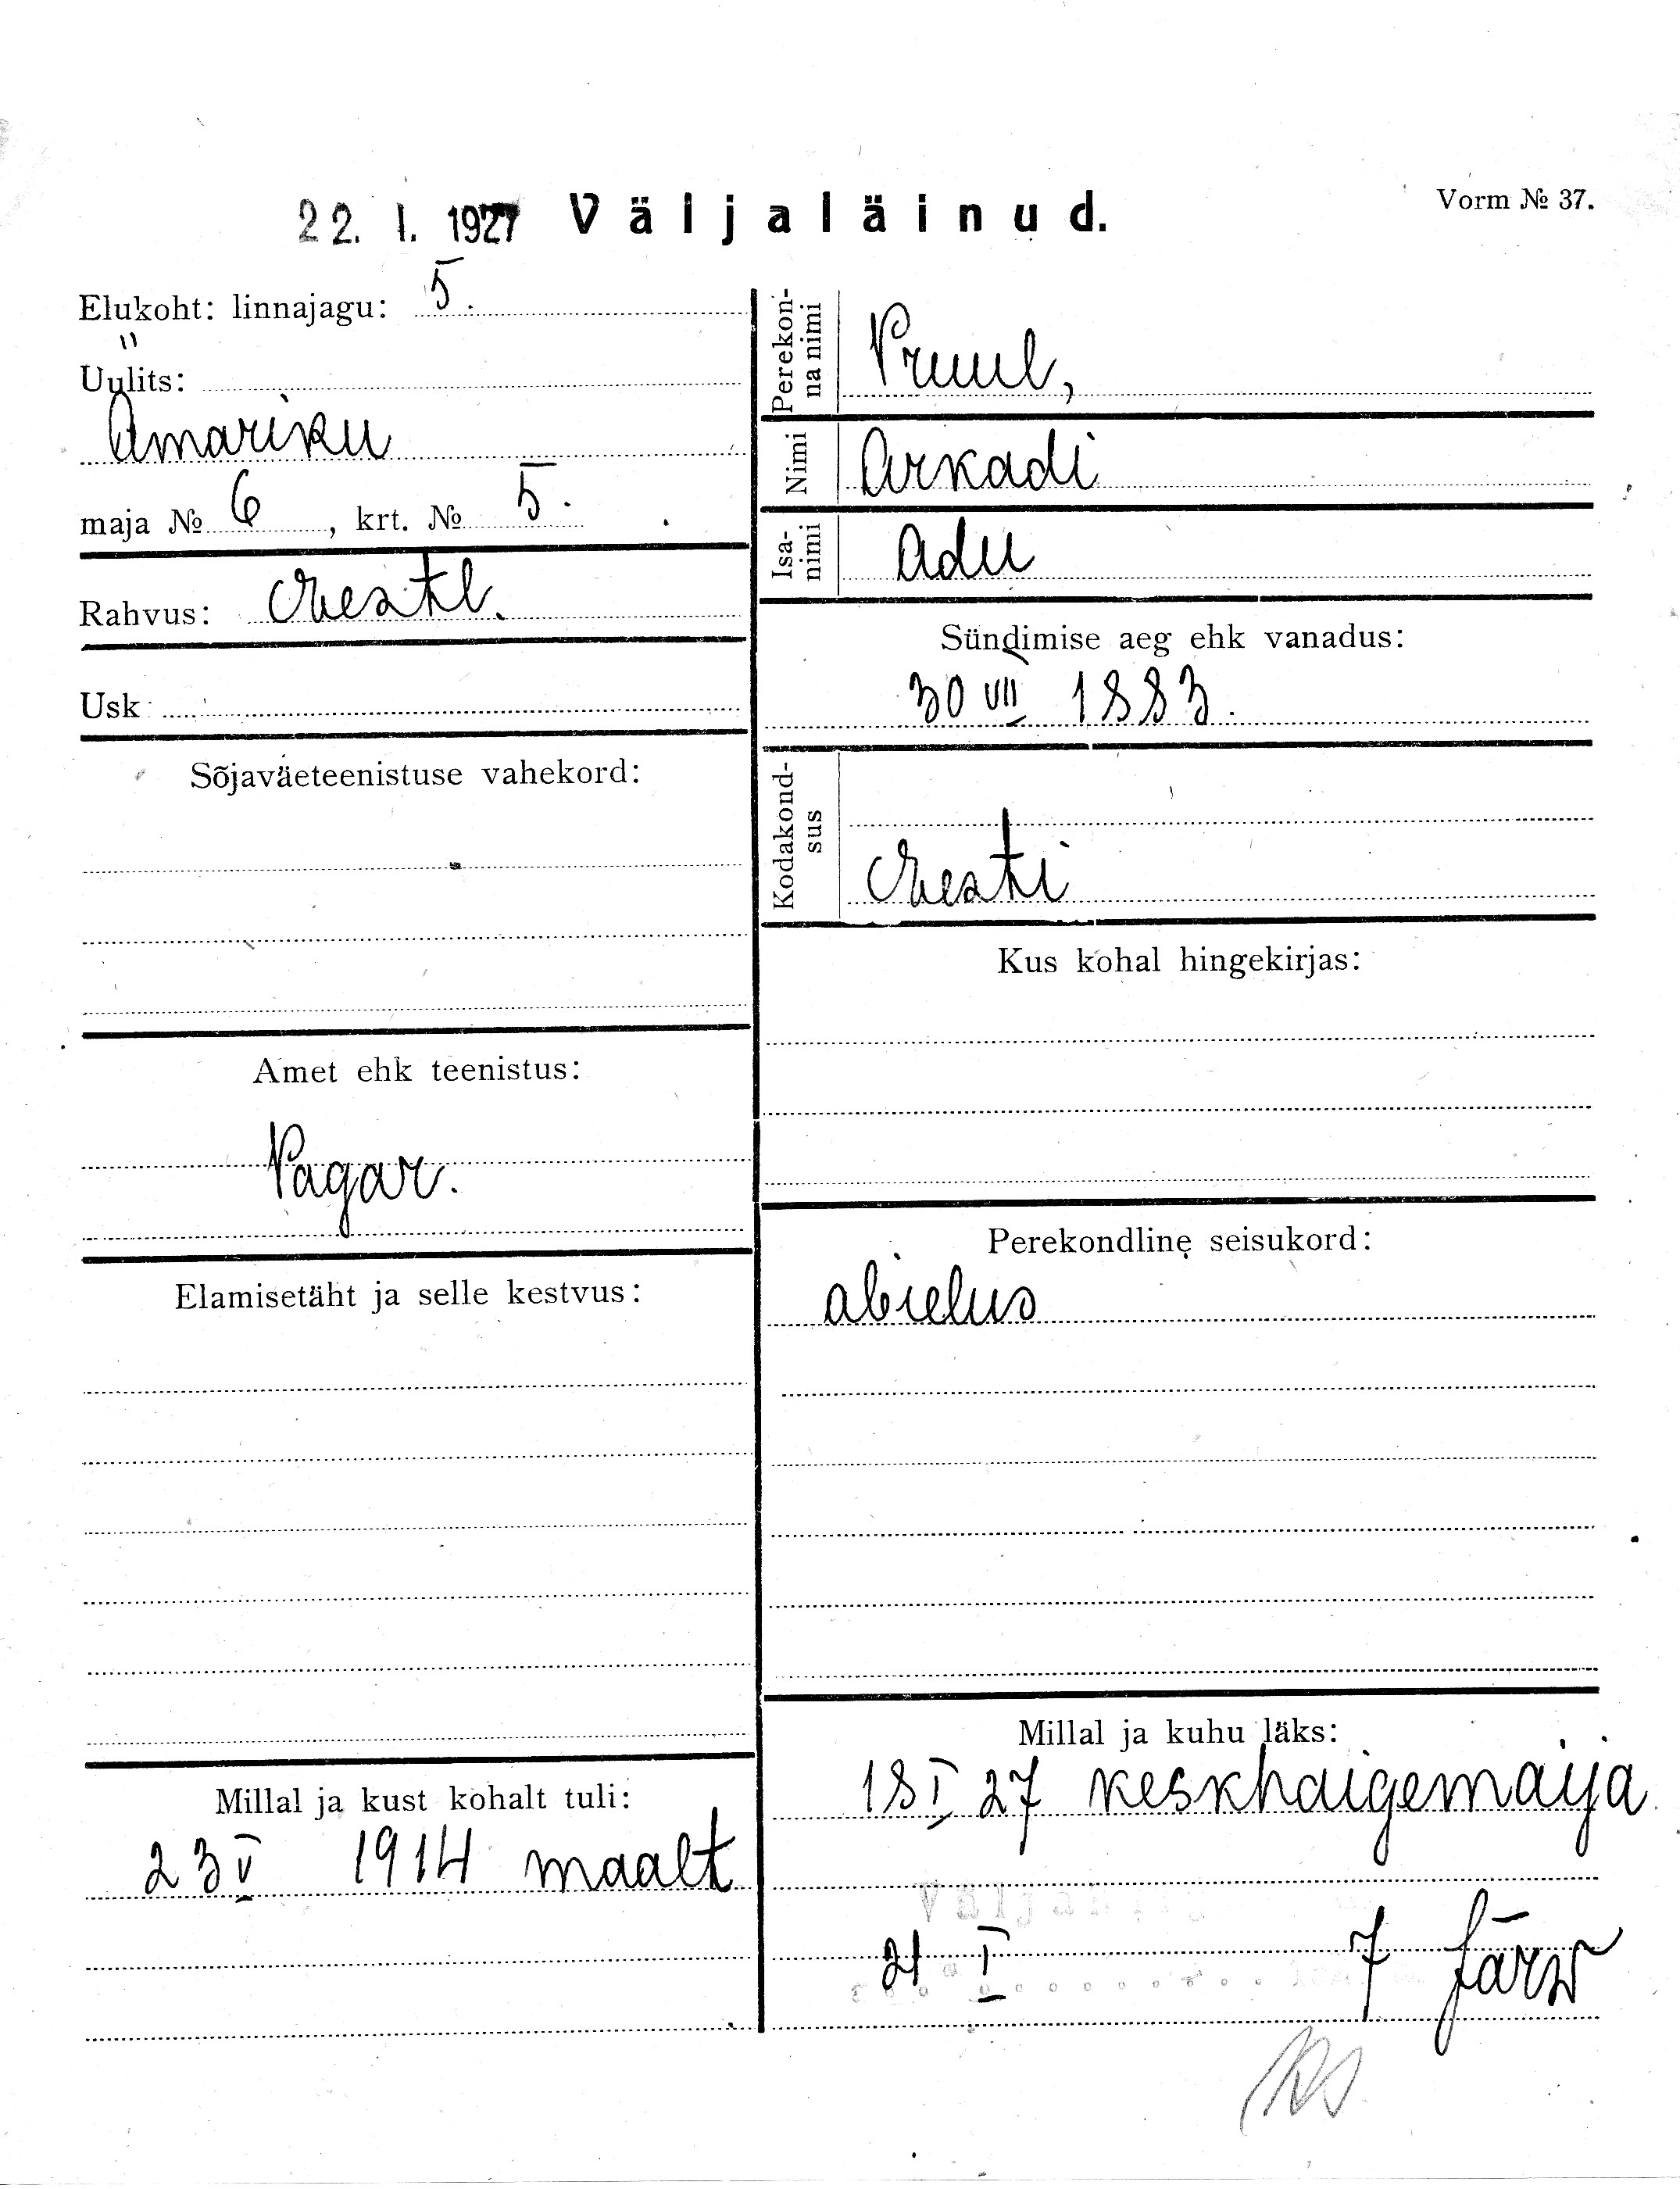 22. I. 1927 Väljaläinud.
Vorm № 37.
Elukoht: linnajagu: 5.
Uulits:
Amariku
maja № 6, krt. № 5.
Rahvus: Eestl.
Usk
Sõjaväeteenistuse vahekord:
Amet ehk teenistus:
Pagar.
Elamisetäht ja selle kestvus:
Millal ja kust kohalt tuli:
23 V 1914 maalt
Perekon-
na nimi
Pruul,
Nimi Arkadi
Isa-
nimi
Adu
Sündimise aeg ehk vanadus:
30 VII 1883.
Kodakond-
sus
Eesti
Kus kohal hingekirjas:
Perekondline seisukord:
abielus
Millal ja kuhu läks:
18 I 27 keskhaigemaija
21 I 7 Järw